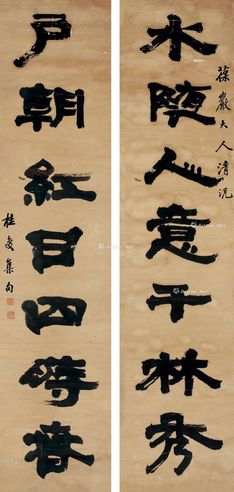 葆巖大人清玩
水随人意千林秀
戶朝紅日四時春
桂馥集句